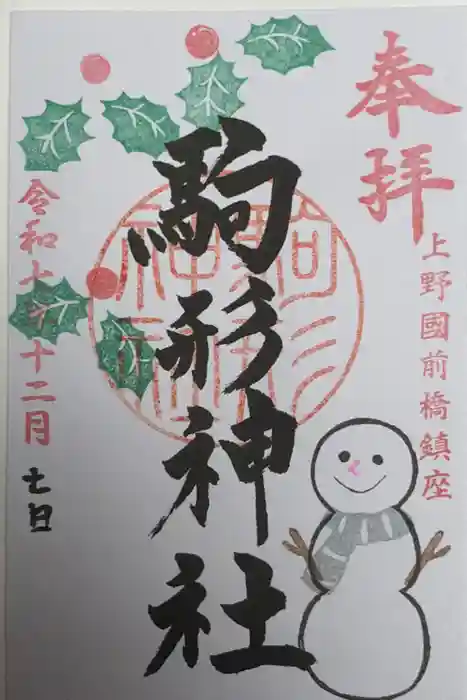 奉拝
上野國前橋鎮座
駒形神社
駒形
神社
令和七年十二月
七日